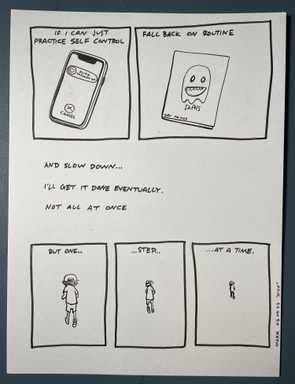 IF I CAN JUST
PRACTICE SELF CONTROL
CANCEL
FALL BACK ON ROUTINE
AND SLOW DOWN...
I'LL GET IT DONE EVENTUALLY.
NOT ALL AT ONCE
BUT ONE...
...STEP...
...AT A TIME.